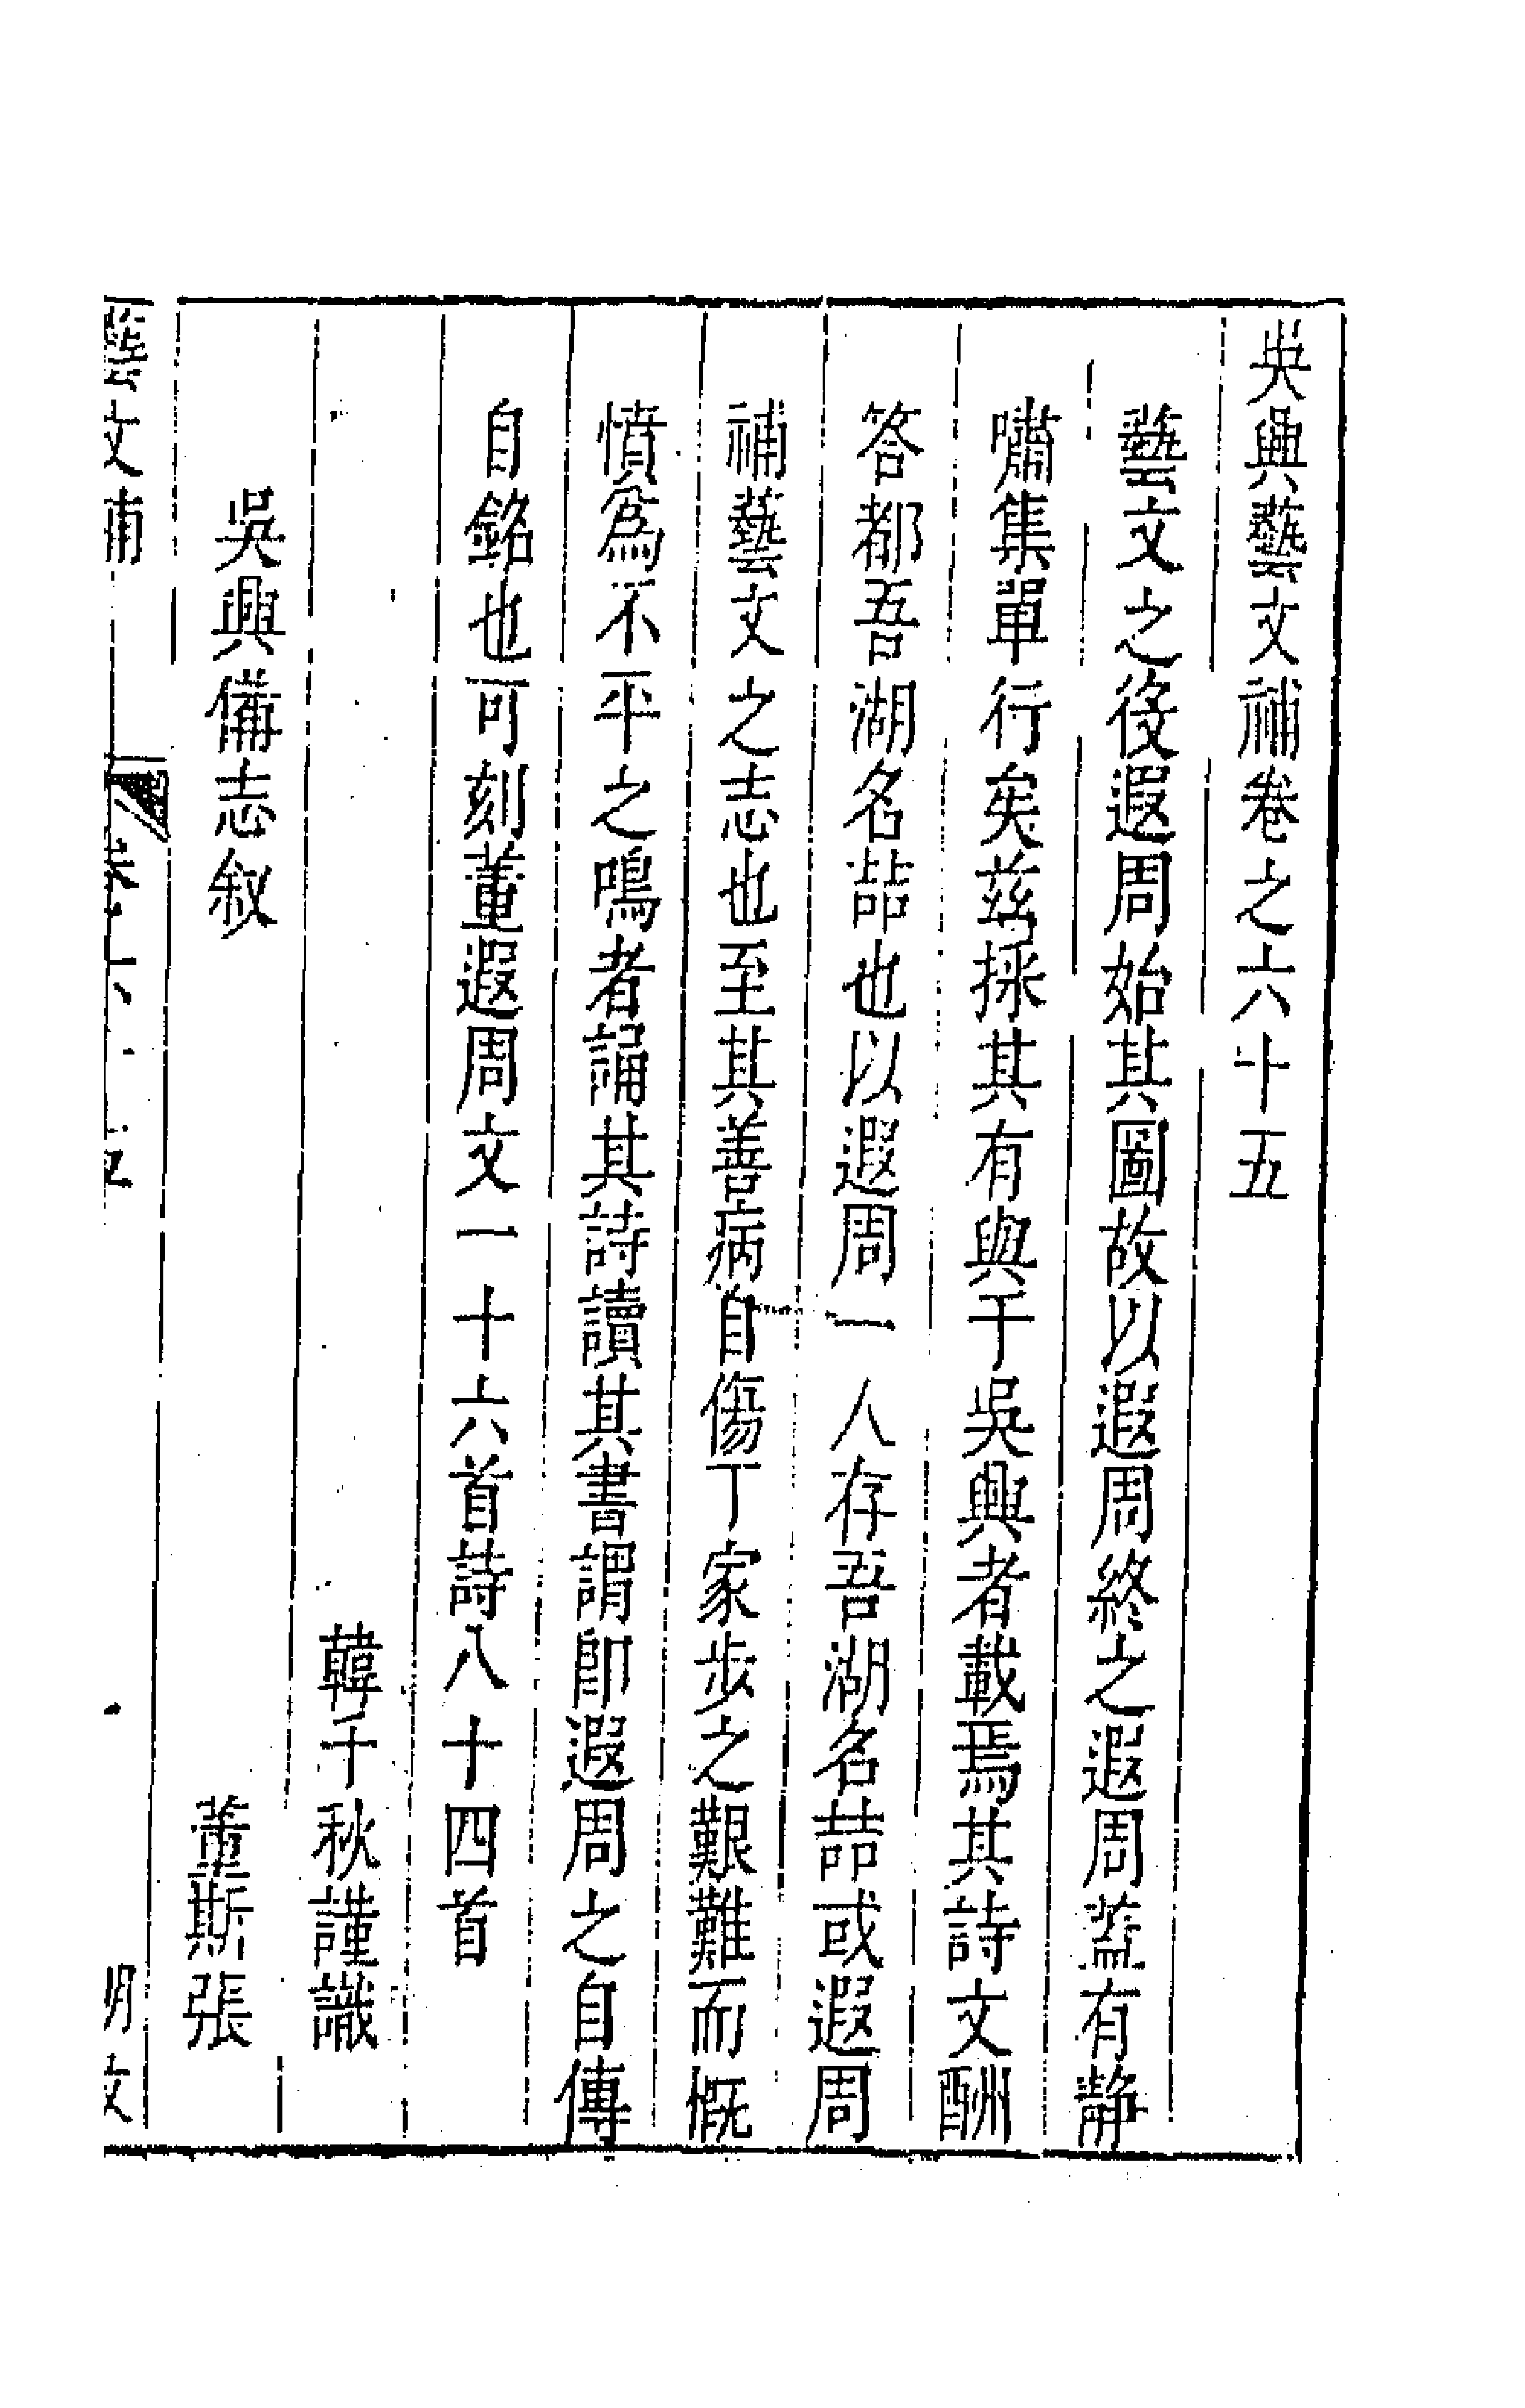 吳興藝文補卷之六十五
藝文之役遐周始其圖故以遐周終之遐周葢有靜
嘯集單行矣兹採其有與于吳興者載焉其詩文酬
答都吾湖名喆也以遐周一人存吾湖名喆或遐周
補藝文之志也至其善病自傷丁家步之艱難而慨
憤爲不平之鳴者誦其詩讀其書謂卽遐周之自傳
自銘也可刻董遐周文一十六首詩八十四首
韓千秋謹識
吳興備志叙
董斯張
藝文補
卷六十五
明文